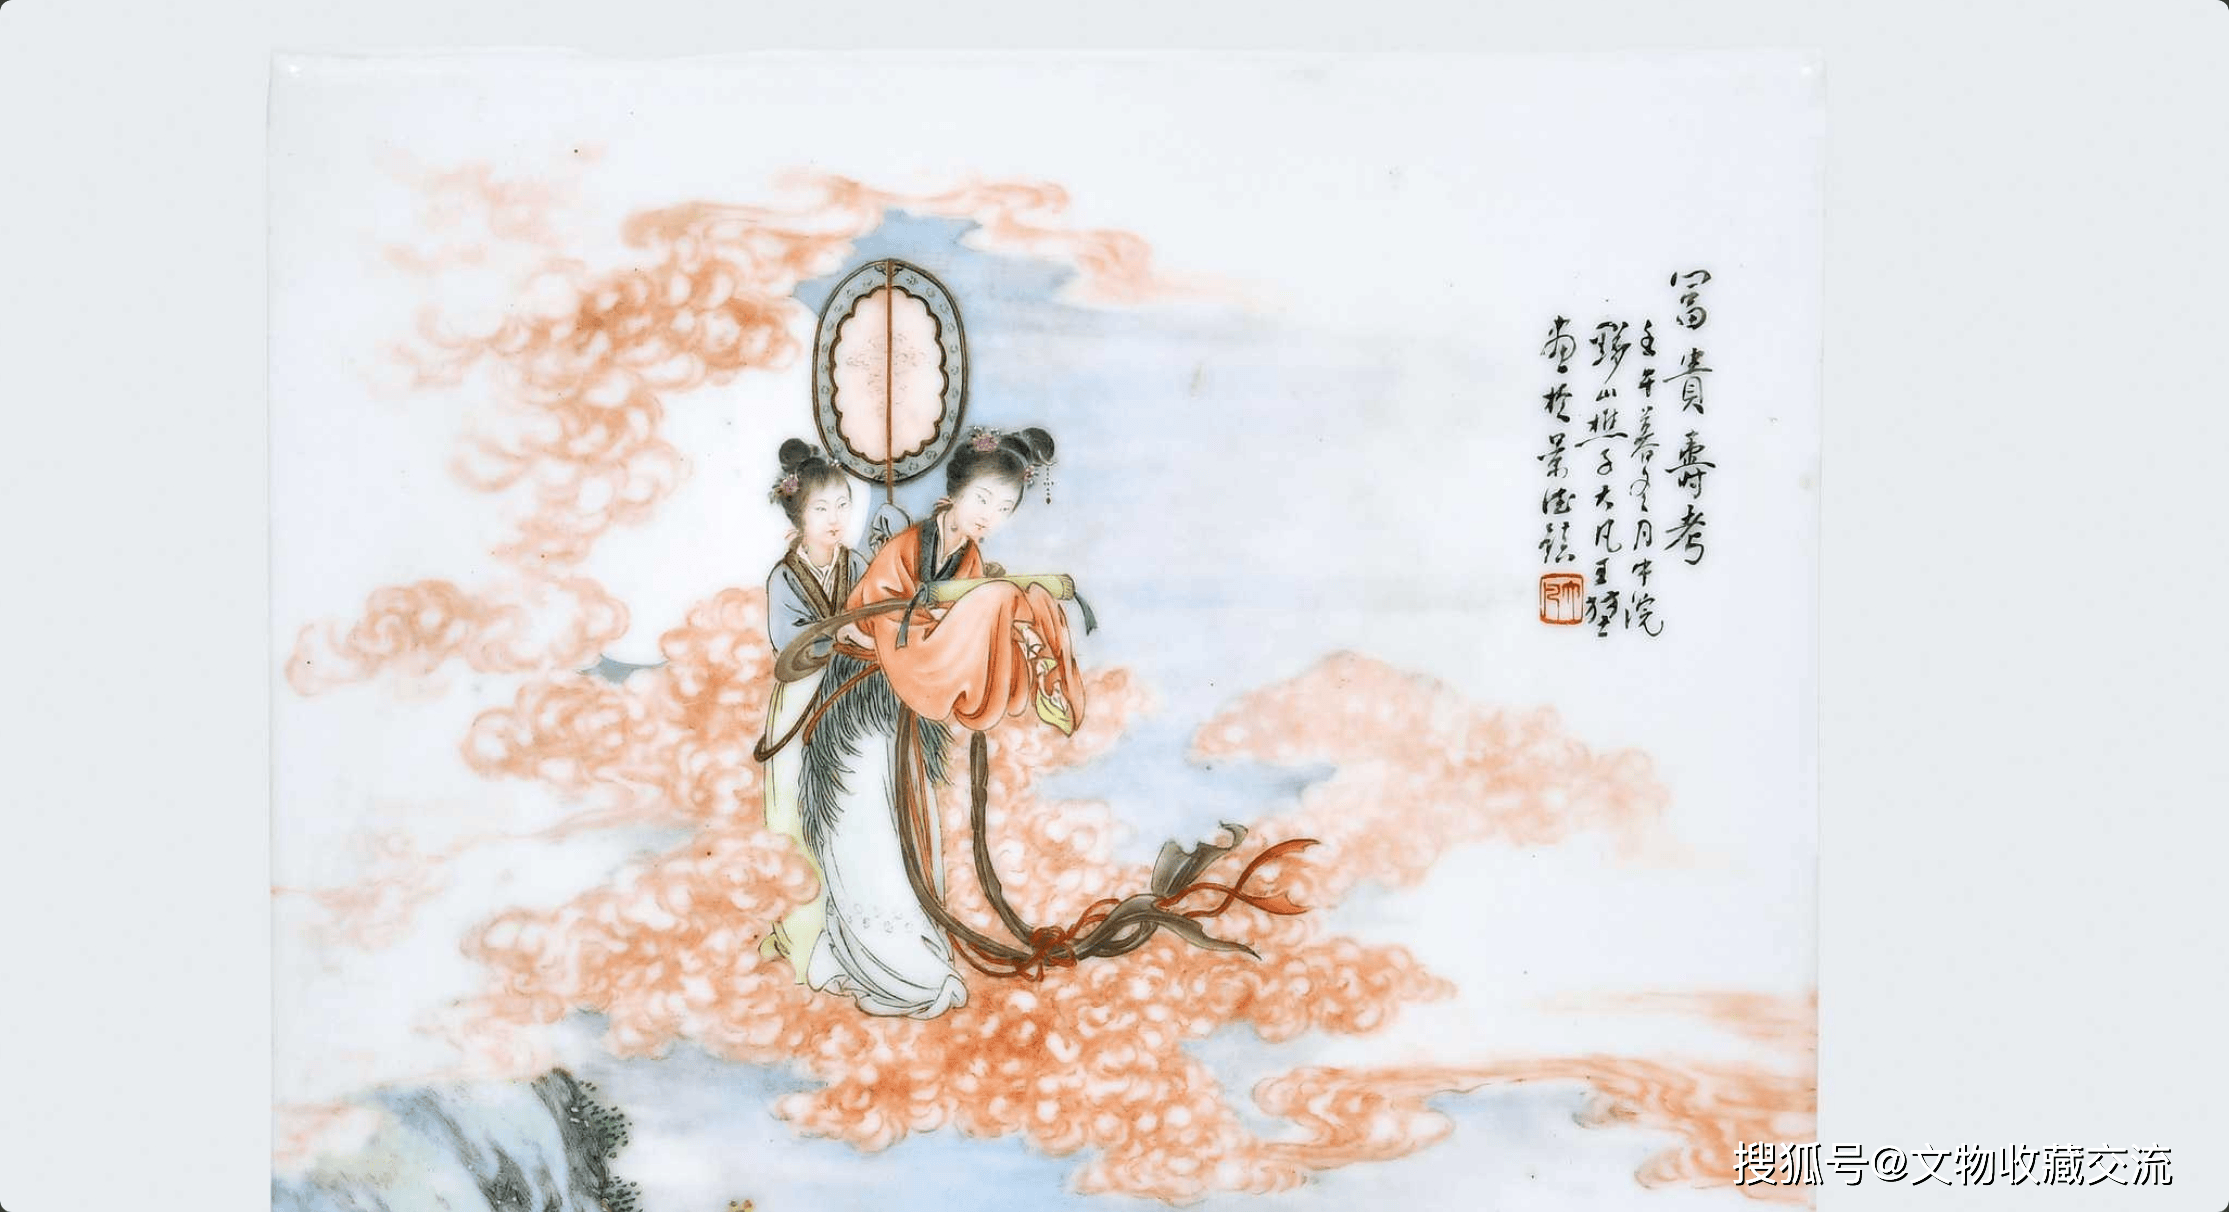 富貴壽考
壬午暮冬月中浣
黟山樵子大凡王堃
畫於景德鎮
大凡
搜狐号@文物收藏交流